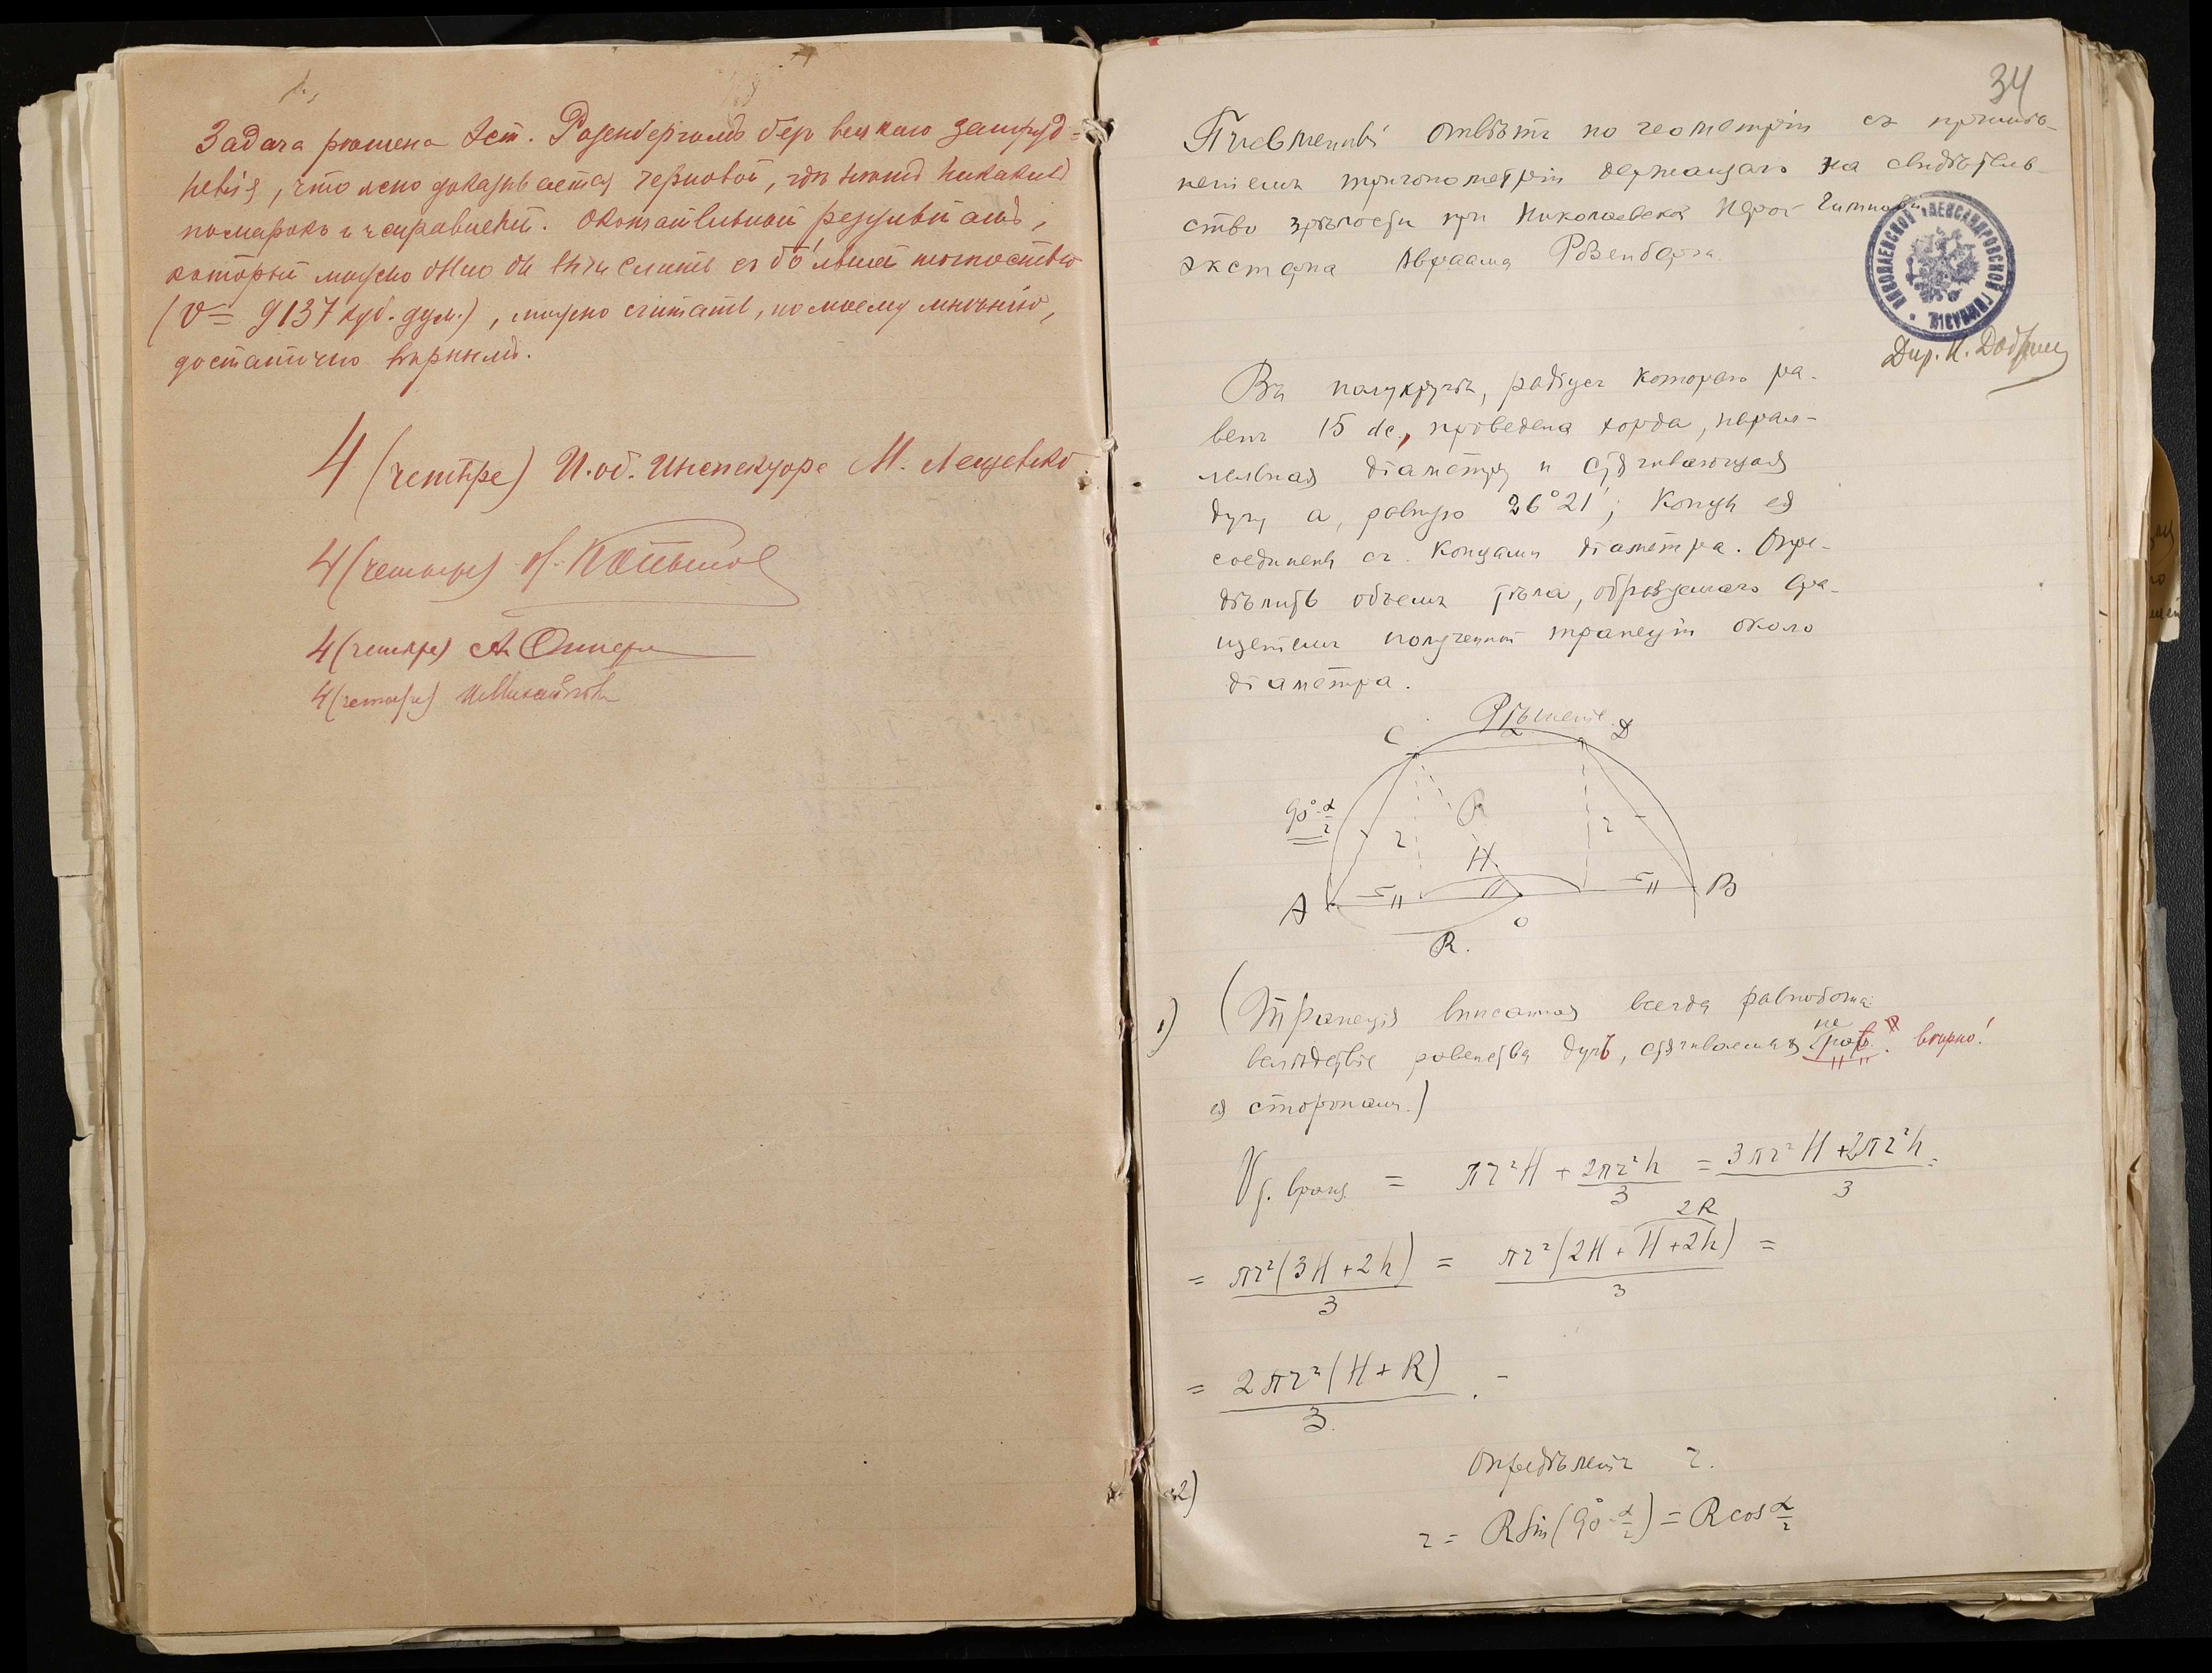 Задача рѣшена Эст. Розенбергомъ безъ всякаго затруд-
ненія, что ясно доказывается черновой, гдѣ нѣтъ никакихъ
помарокъ и исправленій. Окончательный результатъ,
который можно было бы вычислить съ бо́льшей точностью
(V= 9137 куб. дум.), можно считать, по моему мнѣнію,
достаточно вѣрнымъ.
4 (четыре) И. об. Инспектора М. Лещенко.
4 (четыре)
4 (четыре) А.
4 (четыре)
34
Письменный отвѣтъ по геометріи съ примѣ-
неніемъ тригонометріи держащаго на свидѣтель-
ство зрѣлости при Николаевской Перой Гимназіи
экстерна Авраама Розенберга.
НИКОЛАЕВСКОЙ АЛЕКСАНДРОВСКОЙ ГИМНАЗІИ
Дир. Н.
Въ полукругѣ, радіусъ котораго ра-
венъ 15 дс., проведена хорда, парал-
лельная діаметру и стягивающая
дугу α, равную 26°21'; Концы ея
соединены съ концами діаметра. Опре-
дѣлить объемъ тѣла, образуемаго вра-
щеніемъ полученной трапеціи около
діаметра.
Рѣшеніе.
C α D
90°-α/2
R
r r
H
A h h B
O
R.
1) (Трапеція вписанная всегда равнобока
вслѣдствіе равенства дугъ, стягиваемыхъ не парал. вѣрно!
ея сторонами.)
V т. вращ. = πr²H + 2πr²h/3 = (3πr²H + 2πr²h)/3 =
= πr²(3H + 2h)/3 = πr²(2H + H + 2h)/3 =
2R
= 2πr²(H + R)/3.
Опредѣленіе r.
2)
r = R Sin(90°-α/2) = R cos α/2